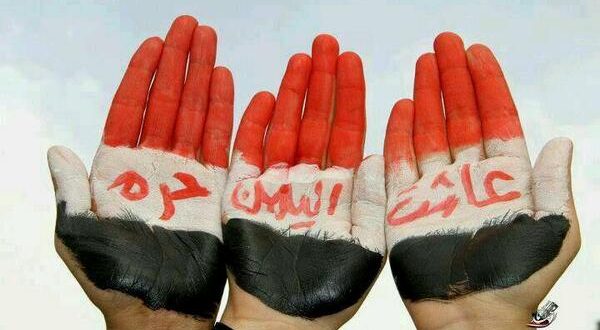 عاشت اليمن حره